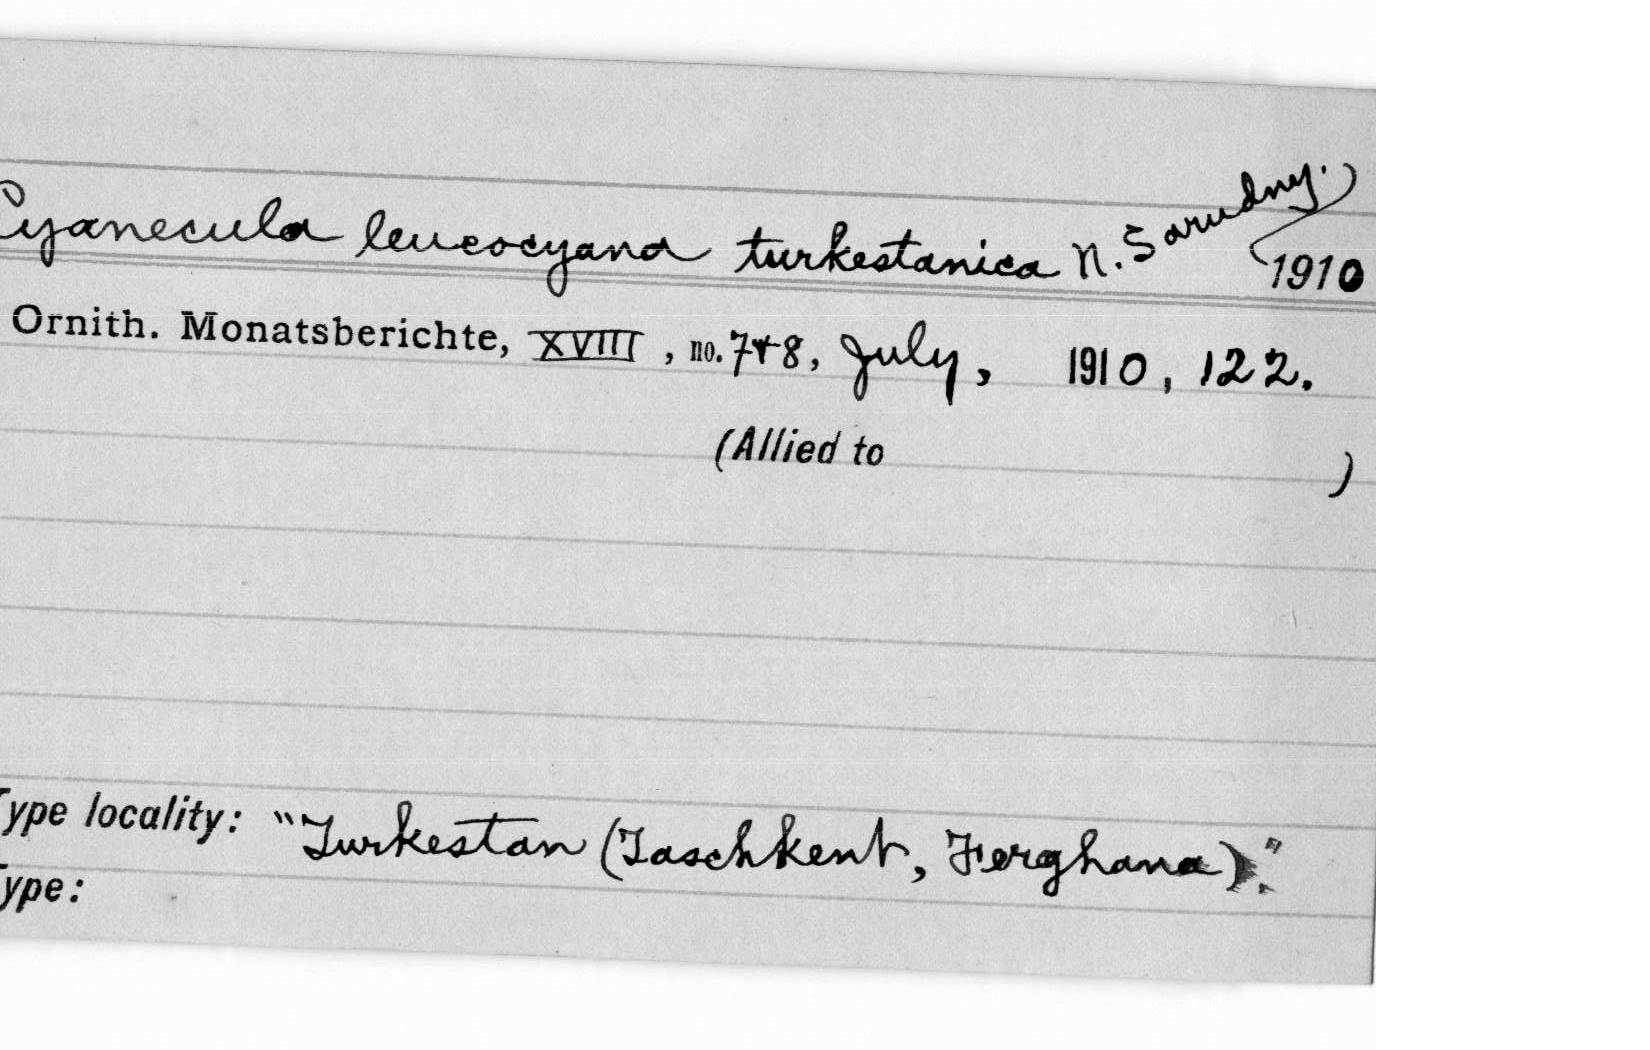 Cyanecula leucocyana turkestanica N. Sarudny.
1910
Ornith. Monatsberichte, XVIII, no. 7+8, July, 1910, 122.
(Allied to )
Type locality: "Turkestan (Taschkent, Ferghana)."
Type: